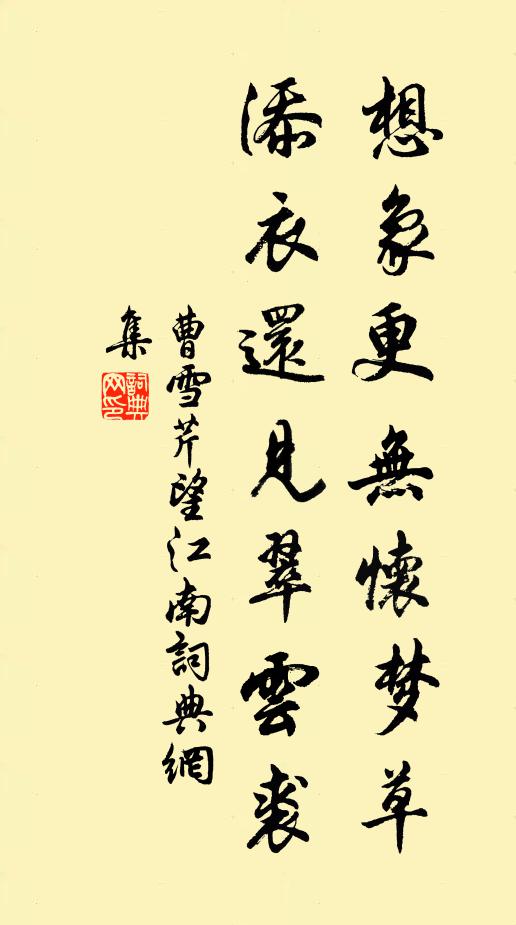 想象更無懷梦草
添衣還見翠雲裘
曹雪芹望江南詞典網
集
詞典網印